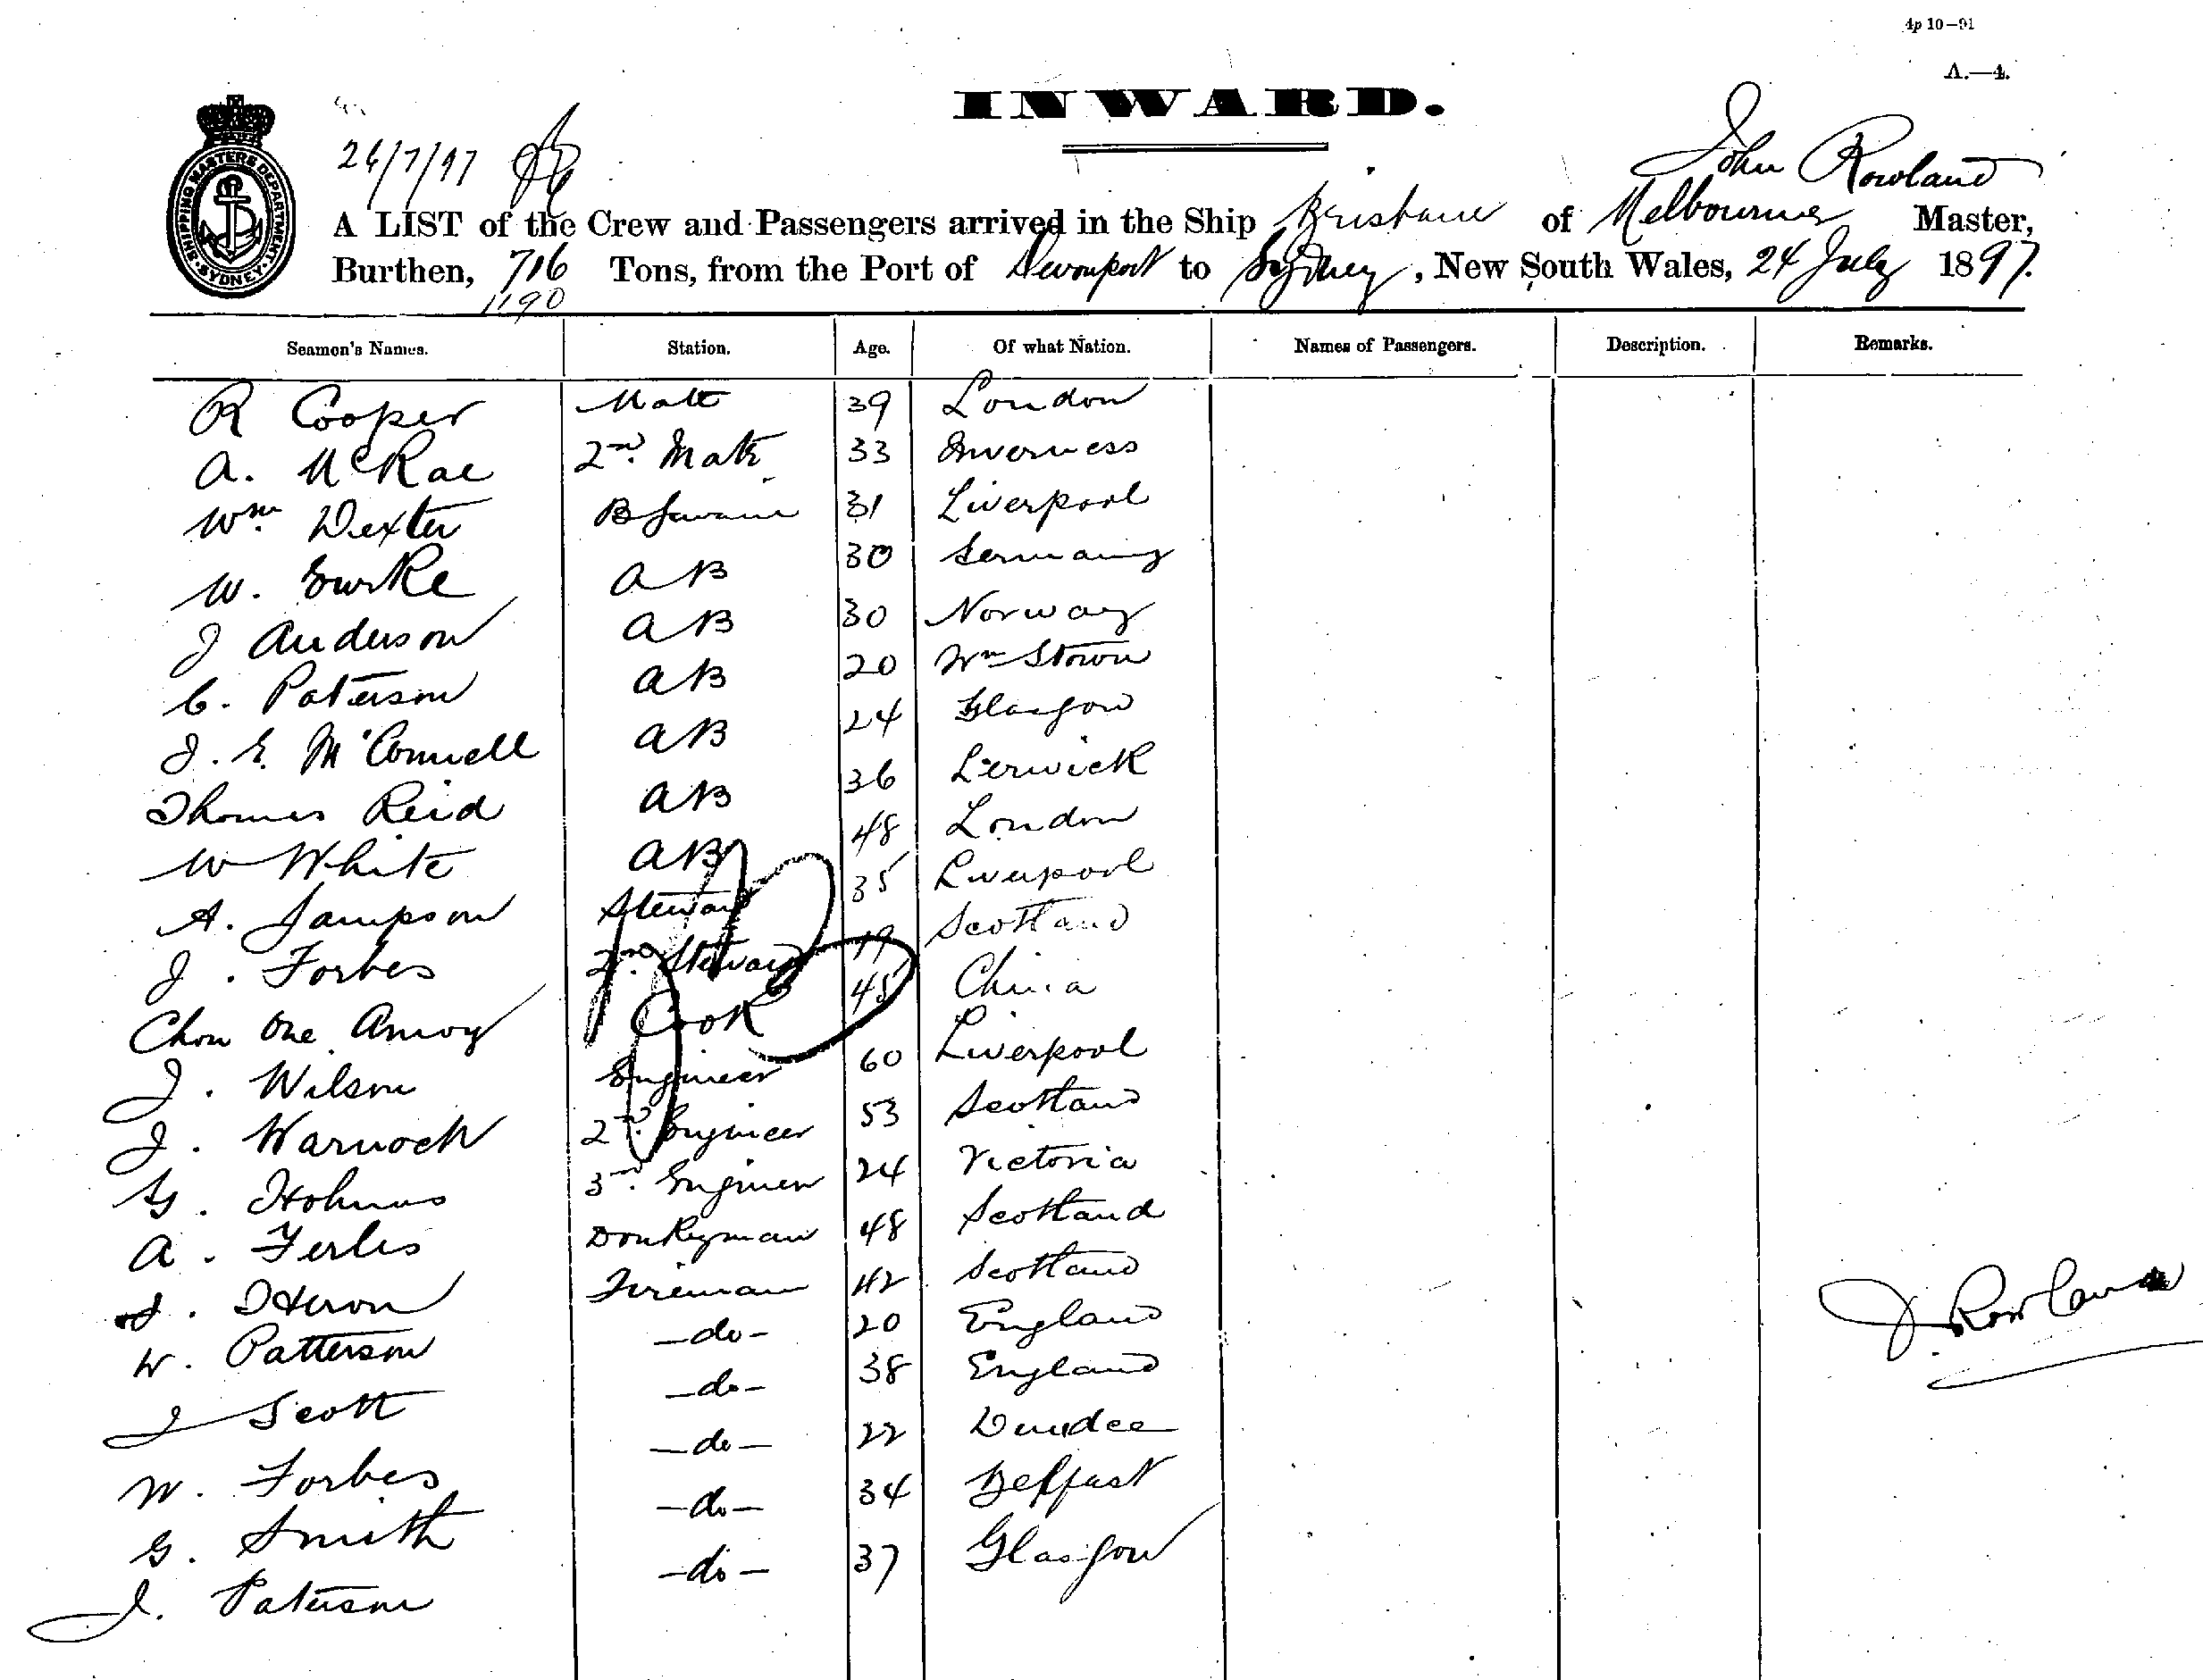 4p 10—91
A.—4.
INWARD.
SHIPPING MASTERS DEPARTMENT · SYDNEY ·
26/7/97
John Rowland
A LIST of the Crew and Passengers arrived in the Ship Brisbane of Melbourne Master,
Burthen, 716 Tons, from the Port of Devonport to Sydney, New South Wales, 24 July 1897.
1190
Seamen's Names. Station. Age. Of what Nation. Names of Passengers. Description. Remarks.
R Cooper Mate 39 London
A. McRae 2nd. Mate 33 Inverness
Wm. Dexter 31 Liverpool
W. AB 30 Germany
J Anderson AB 30 Norway
C. Paterson AB 20 Wm Stown
J. E. McConnell AB 24 Glasgow
Thomas Reid AB 36 Lerwick
W White AB 48 London
A. Sampson Steward 35 Liverpool
J. Forbes 2nd. Steward 19 Scotland
Chon One Amoy Cook 45 China
J. Wilson Engineer 60 Liverpool
J. Warnock 2nd. Engineer 53 Scotland
G. Holmes 3rd. Engineer 24 Victoria
A. Donkeyman 48 Scotland
Fireman 42 Scotland
W. Patterson —do— 20 England
J Scott —do— 38 England
W. Forbes —do— 22 Dundee
G. Smith —do— 34 Belfast
J. Paterson —do— 37 Glasgow
J Rowland